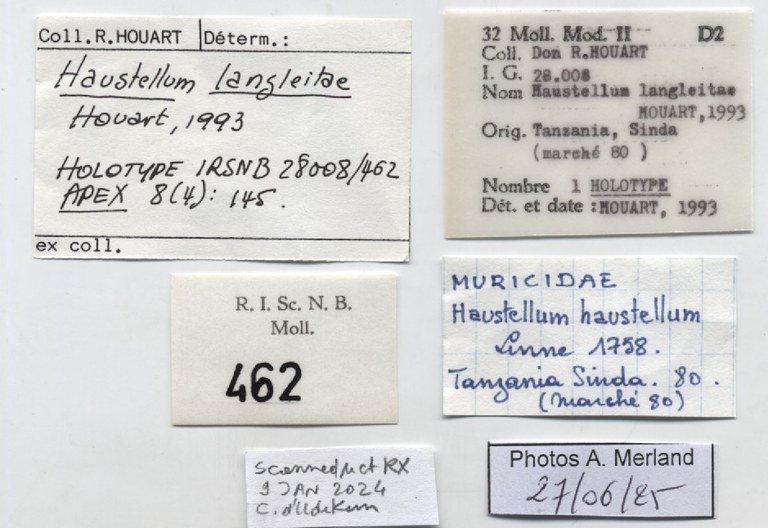 Coll.R.HOUART Déterm.:
Haustellum langleitae
Houart, 1993
HOLOTYPE IRSNB 28008/462
APEX 8(4): 145.
ex coll.
32 Moll. Mod. II D2
Coll. Don R.HOUART
I. G. 28.008
Nom Haustellum langleitae
HOUART,1993
Orig. Tanzania, Sinda
(marché 80 )
Nombre 1 HOLOTYPE
Dét. et date :HOUART, 1993
R. I. Sc. N. B.
Moll.
462
MURICIDAE
Haustellum haustellum
Linne 1758.
Tanzania Sinda. 80.
(Marché 80)
Scanned μct RX
9 JAN 2024
C. d'UdeKem
Photos A. Merland
27/06/25